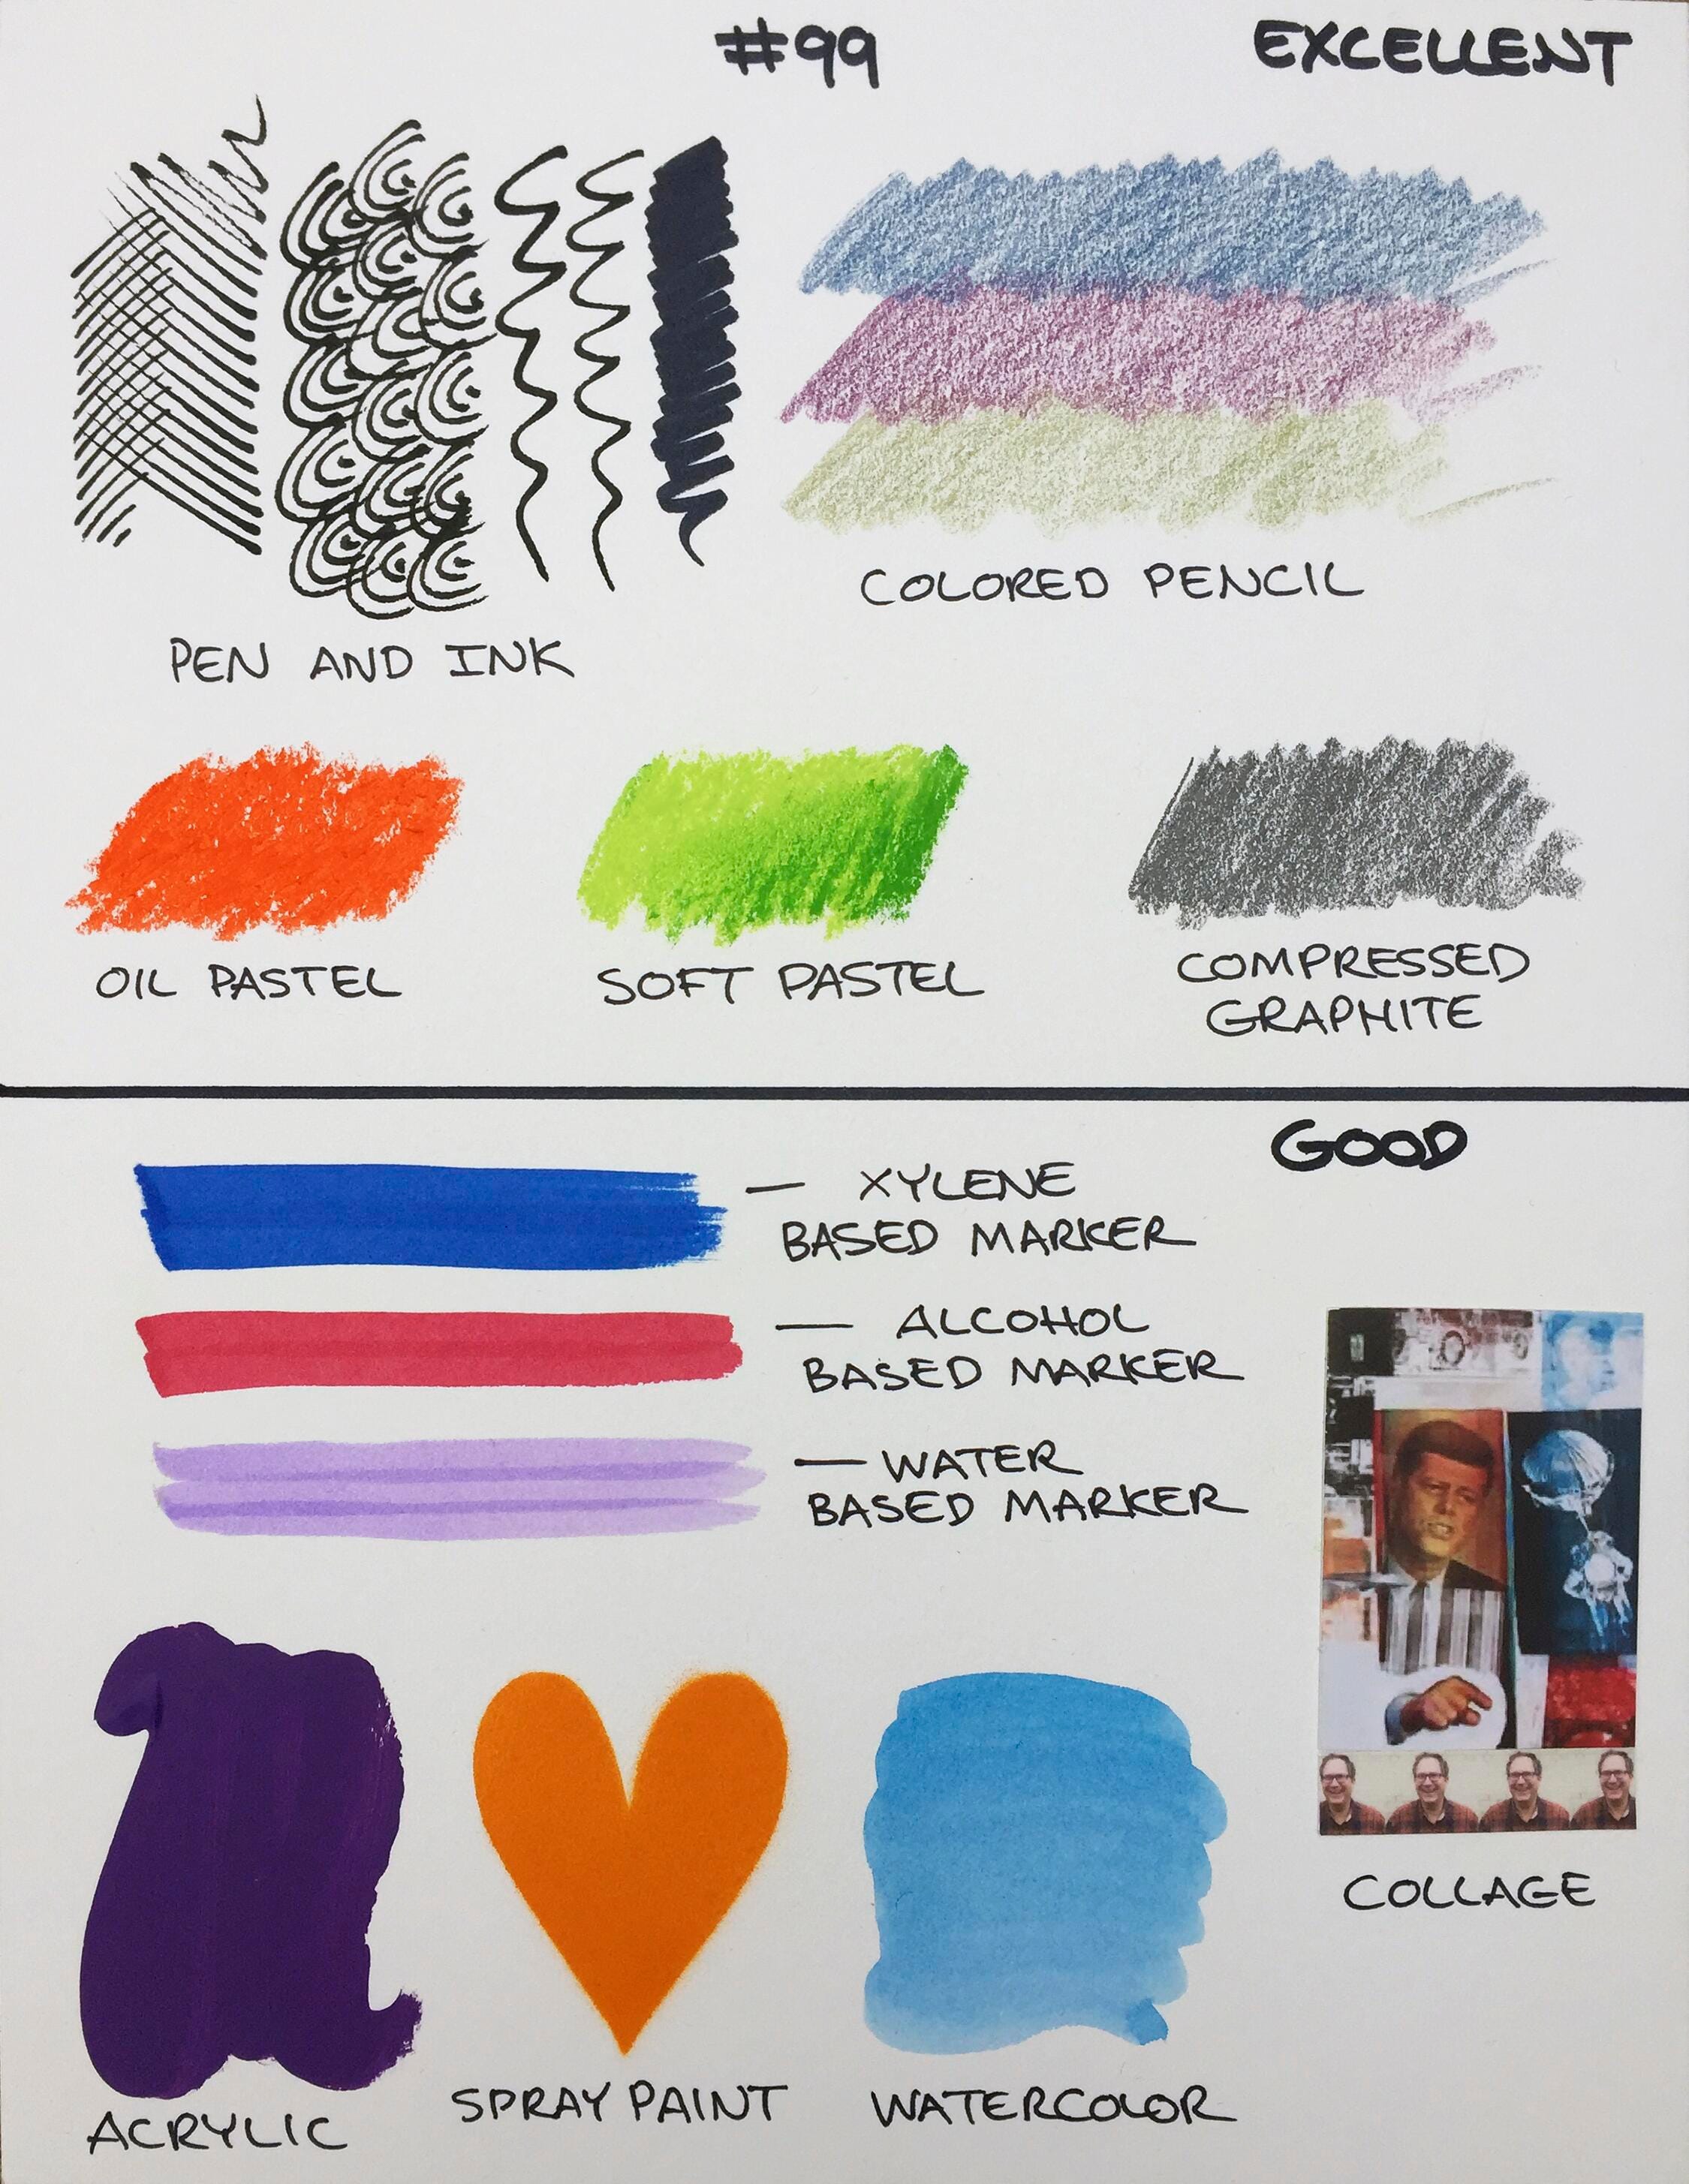 #99
EXCELLENT
PEN AND INK
COLORED PENCIL
OIL PASTEL
SOFT PASTEL
COMPRESSED
GRAPHITE
GOOD
— XYLENE
BASED MARKER
— ALCOHOL
BASED MARKER
— WATER
BASED MARKER
COLLAGE
ACRYLIC
SPRAY PAINT
WATERCOLOR